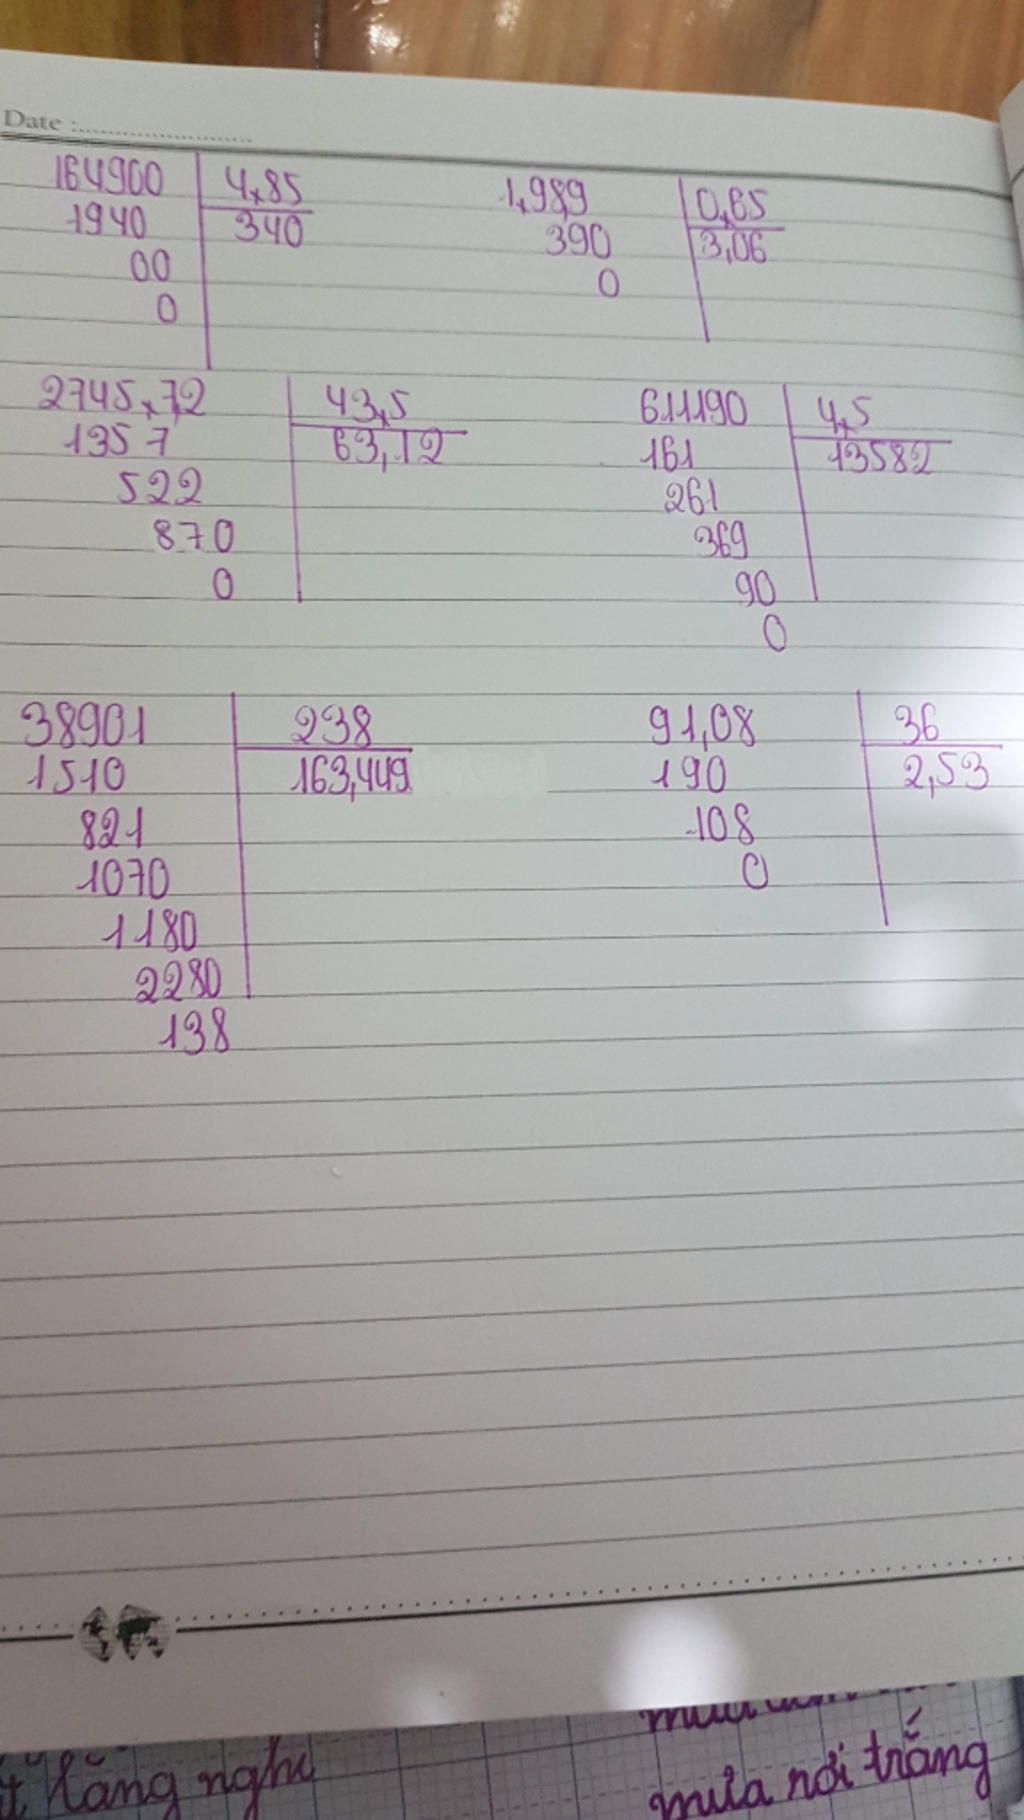 Date :
164900 4,85
1940 340
00
0
1,989 0,65
390 3,06
0
2745,72 43,5
1357 63,12
522
870
0
611190 4,5
161 13582
261
369
90
0
38901 238
1510 163,449
821
1070
1180
2280
138
91,08 36
190 2,53
108
0
lăng nghi
mưa rơi trắng